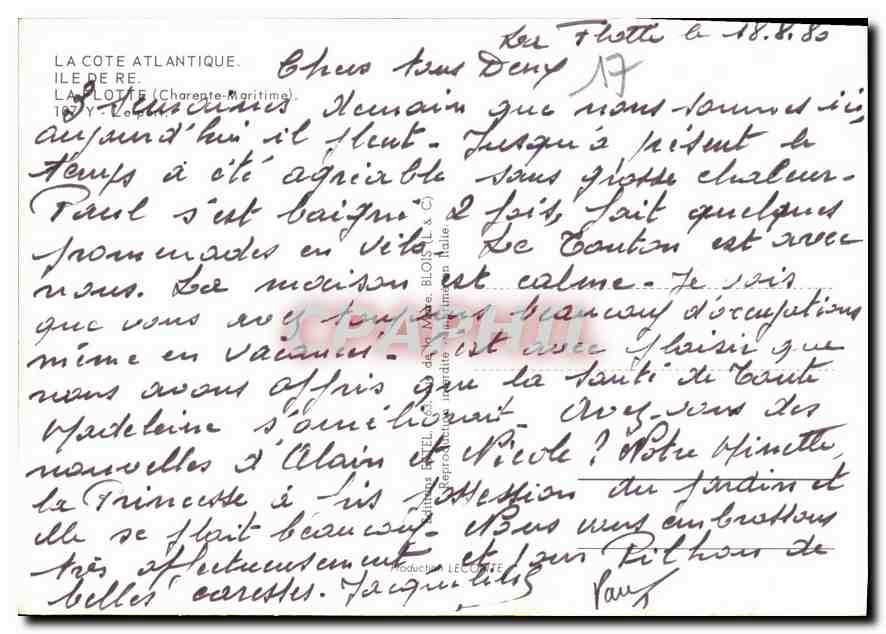 La Flotte le 18.8.80
LA COTE ATLANTIQUE.
ILE DE RE.
LA FLOTTE (Charente-Maritime).
Chers tous Deux
17
3 semaines demain que nous sommes ici,
aujourd'hui il pleut - Jusqu'à présent le
temps a été agréable sans grosse chaleur -
Paul s'est baigné 2 fois, fait quelques
promenades en vélo. Le Tonton est avec
nous. La maison est calme - Je vois
que vous avez toujours beaucoup d'occupations
même en vacances - C'est avec plaisir que
nous avons appris que la santé de Tante
Madeleine s'améliorait. Avez-vous des
nouvelles d'Alain et Nicole ? Notre Minette,
la Princesse a pris possession du jardin et
elle se plait beaucoup - Nous vous embrassons
très affectueusement et pour Pilhon de
belles caresses - Jacqueline
Paul
Editions ESTEL, de la Mare, BLOIS (L. & C.)
Reproduction interdite - Imprimé en Italie.
Production LECONTE
CPAPHIL